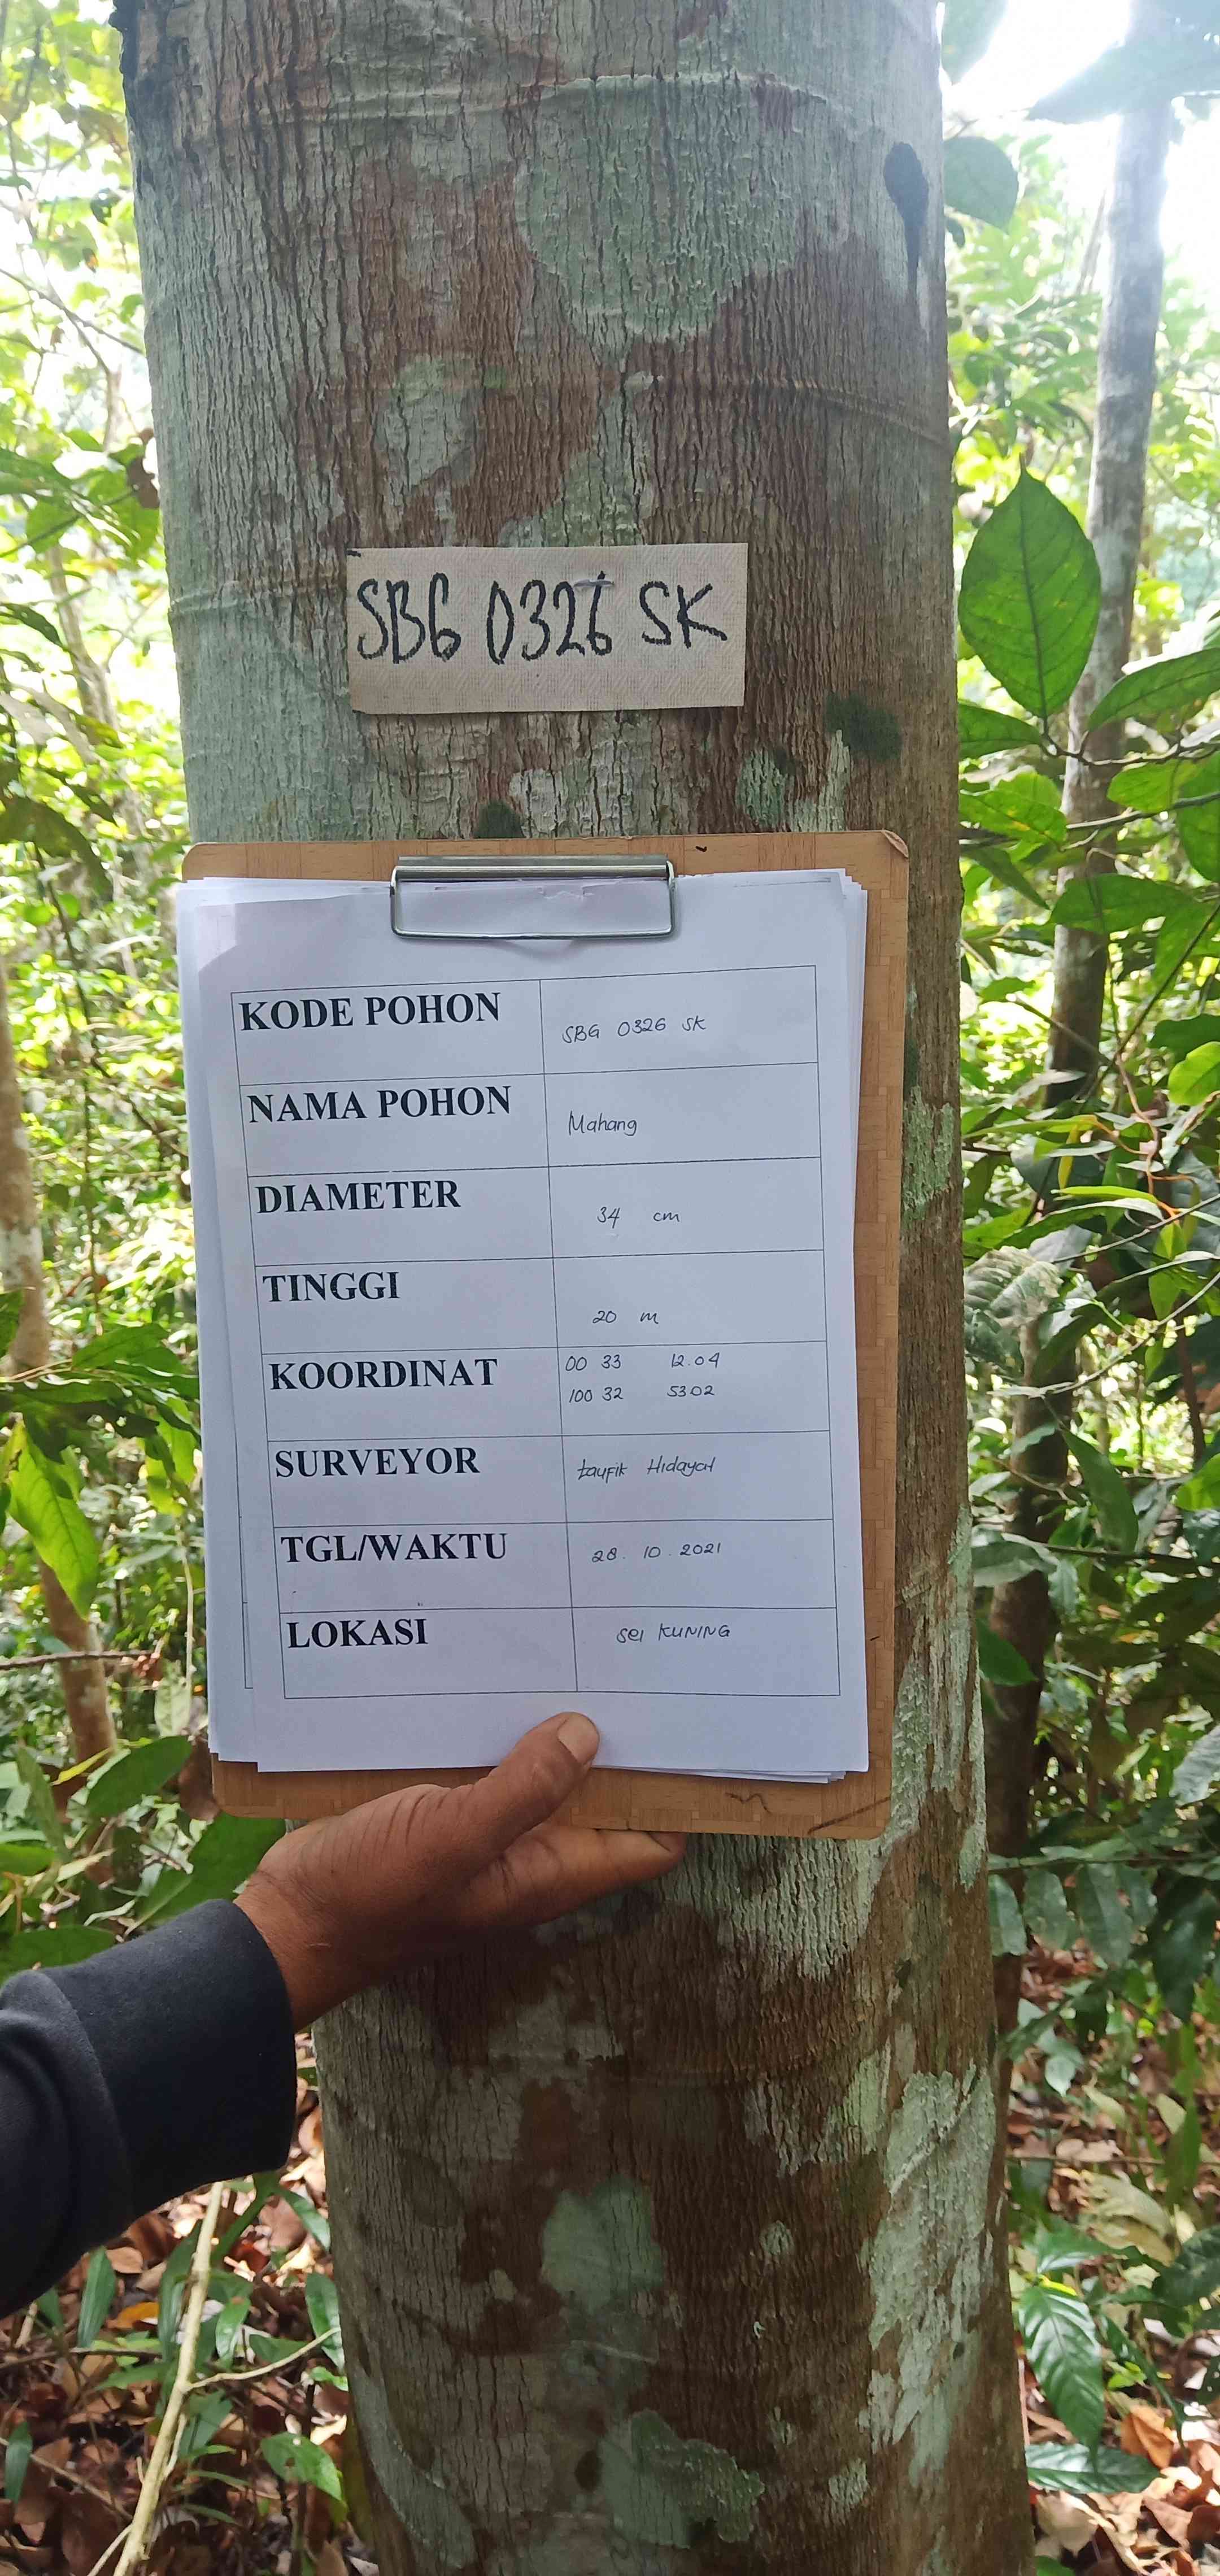 SBG 0326 SK
KODE POHON SBG 0326 SK
NAMA POHON Mahang
DIAMETER 34 cm
TINGGI 20 m
KOORDINAT 00 33 12.04
100 32 53.02
SURVEYOR taufik Hidayat
TGL/WAKTU 28. 10. 2021
LOKASI sei KUNING